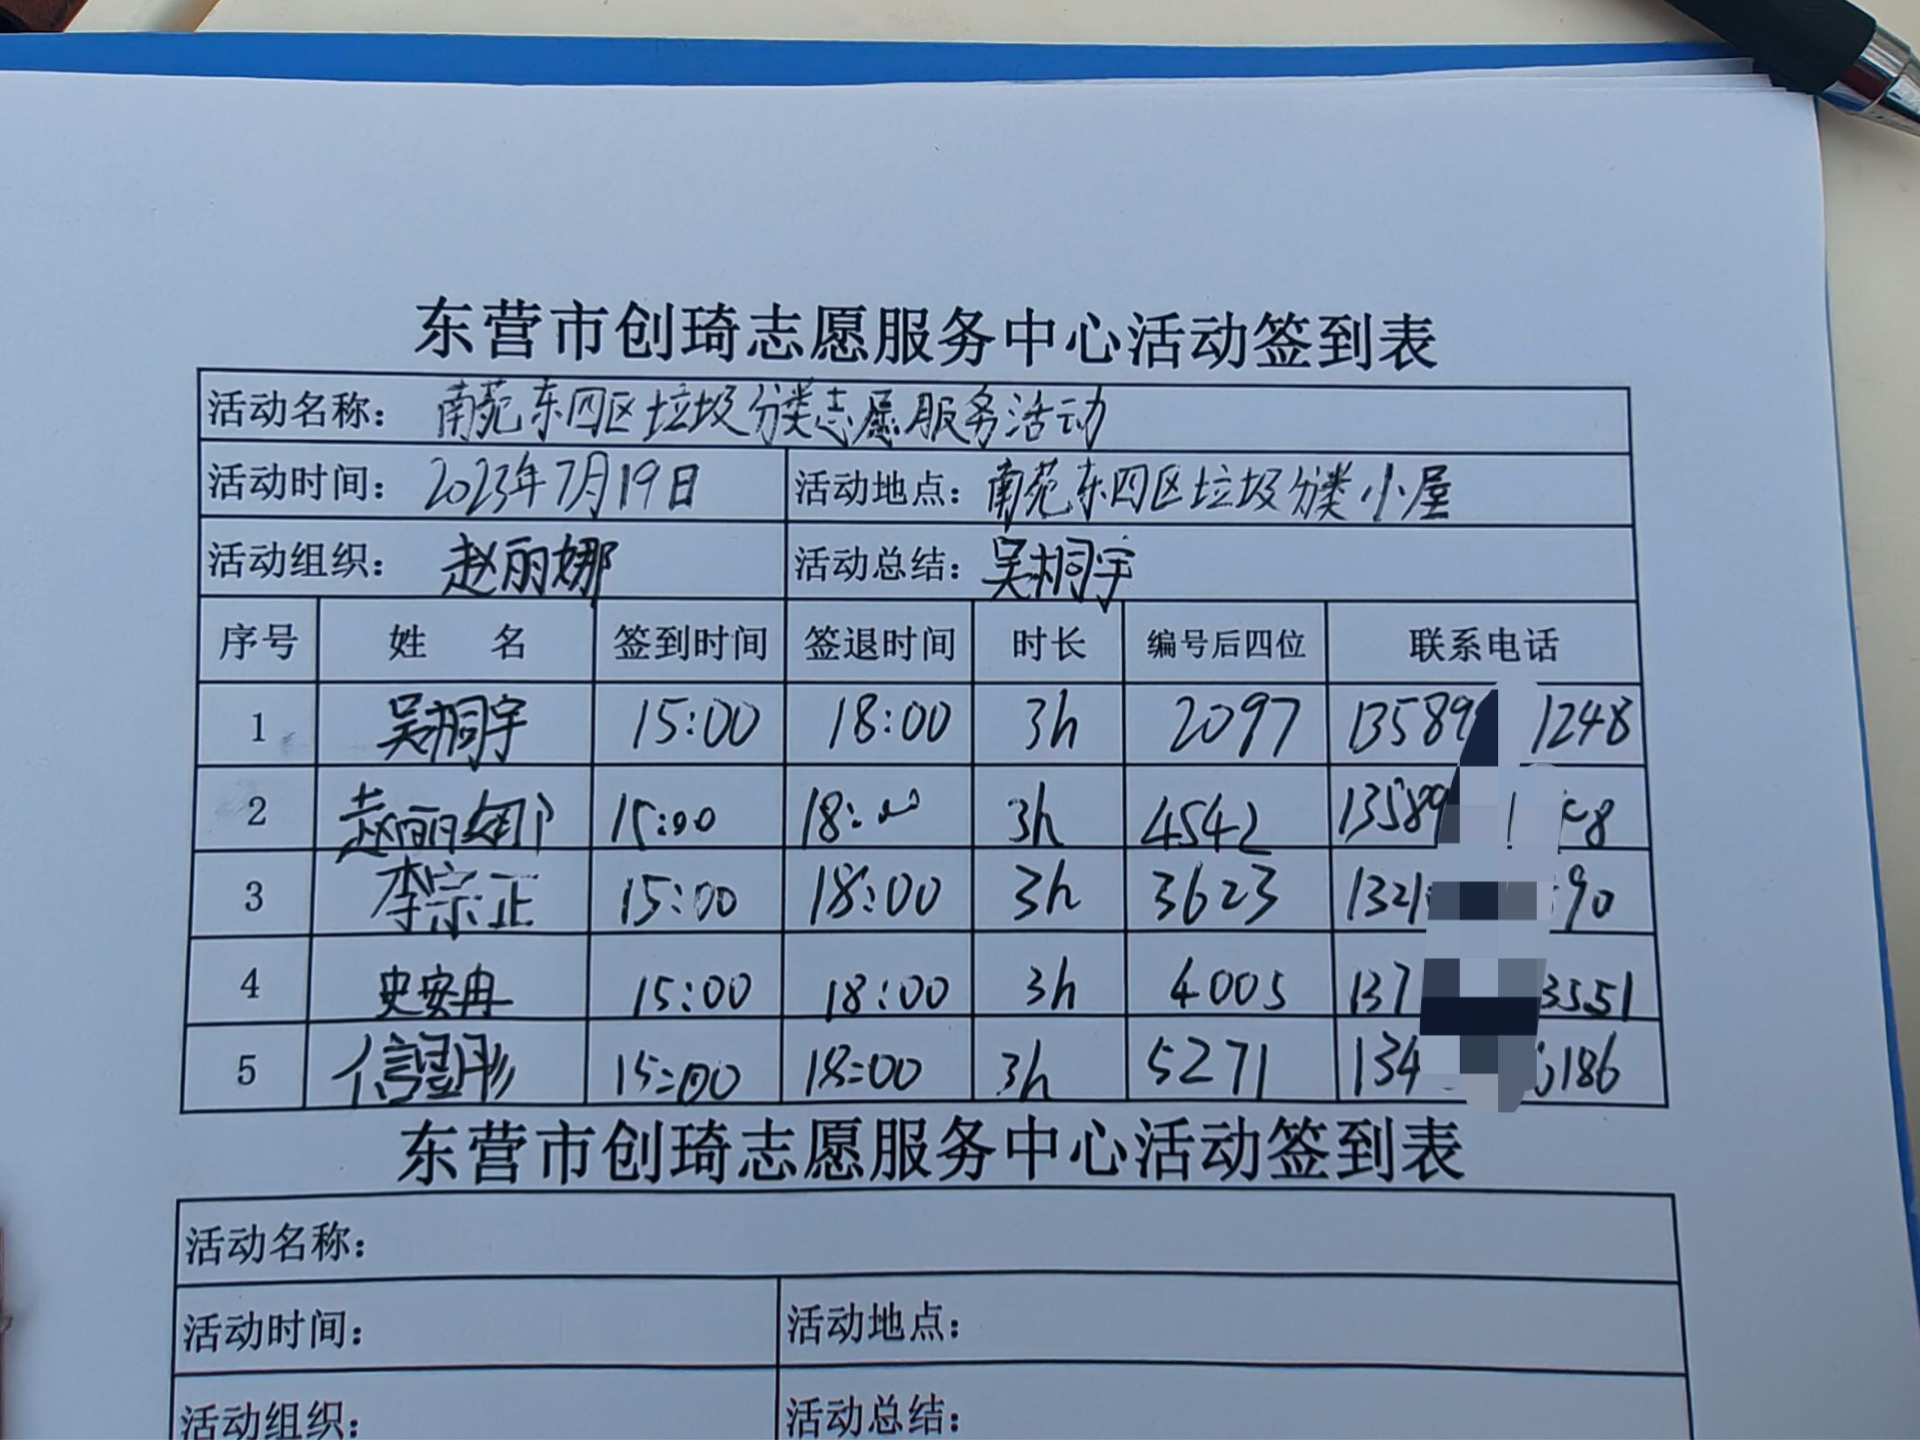 东营市创琦志愿服务中心活动签到表
活动名称: 南苑东四区垃圾分类志愿服务活动
活动时间: 2023年7月19日 活动地点: 南苑东四区垃圾分类小屋
活动组织: 赵丽娜 活动总结: 吴桐宇
序号 姓 名 签到时间 签退时间 时长 编号后四位 联系电话
1 吴桐宇 15:00 18:00 3h 2097 13589 1248
2 赵丽娜 15:00 18:00 3h 4542 13589 8
3 李宗正 15:00 18:00 3h 3623 1321 90
4 史安冉 15:00 18:00 3h 4005 137 3551
5 信 15:00 18:00 3h 5271 134 186
东营市创琦志愿服务中心活动签到表
活动名称:
活动时间: 活动地点:
活动组织: 活动总结: